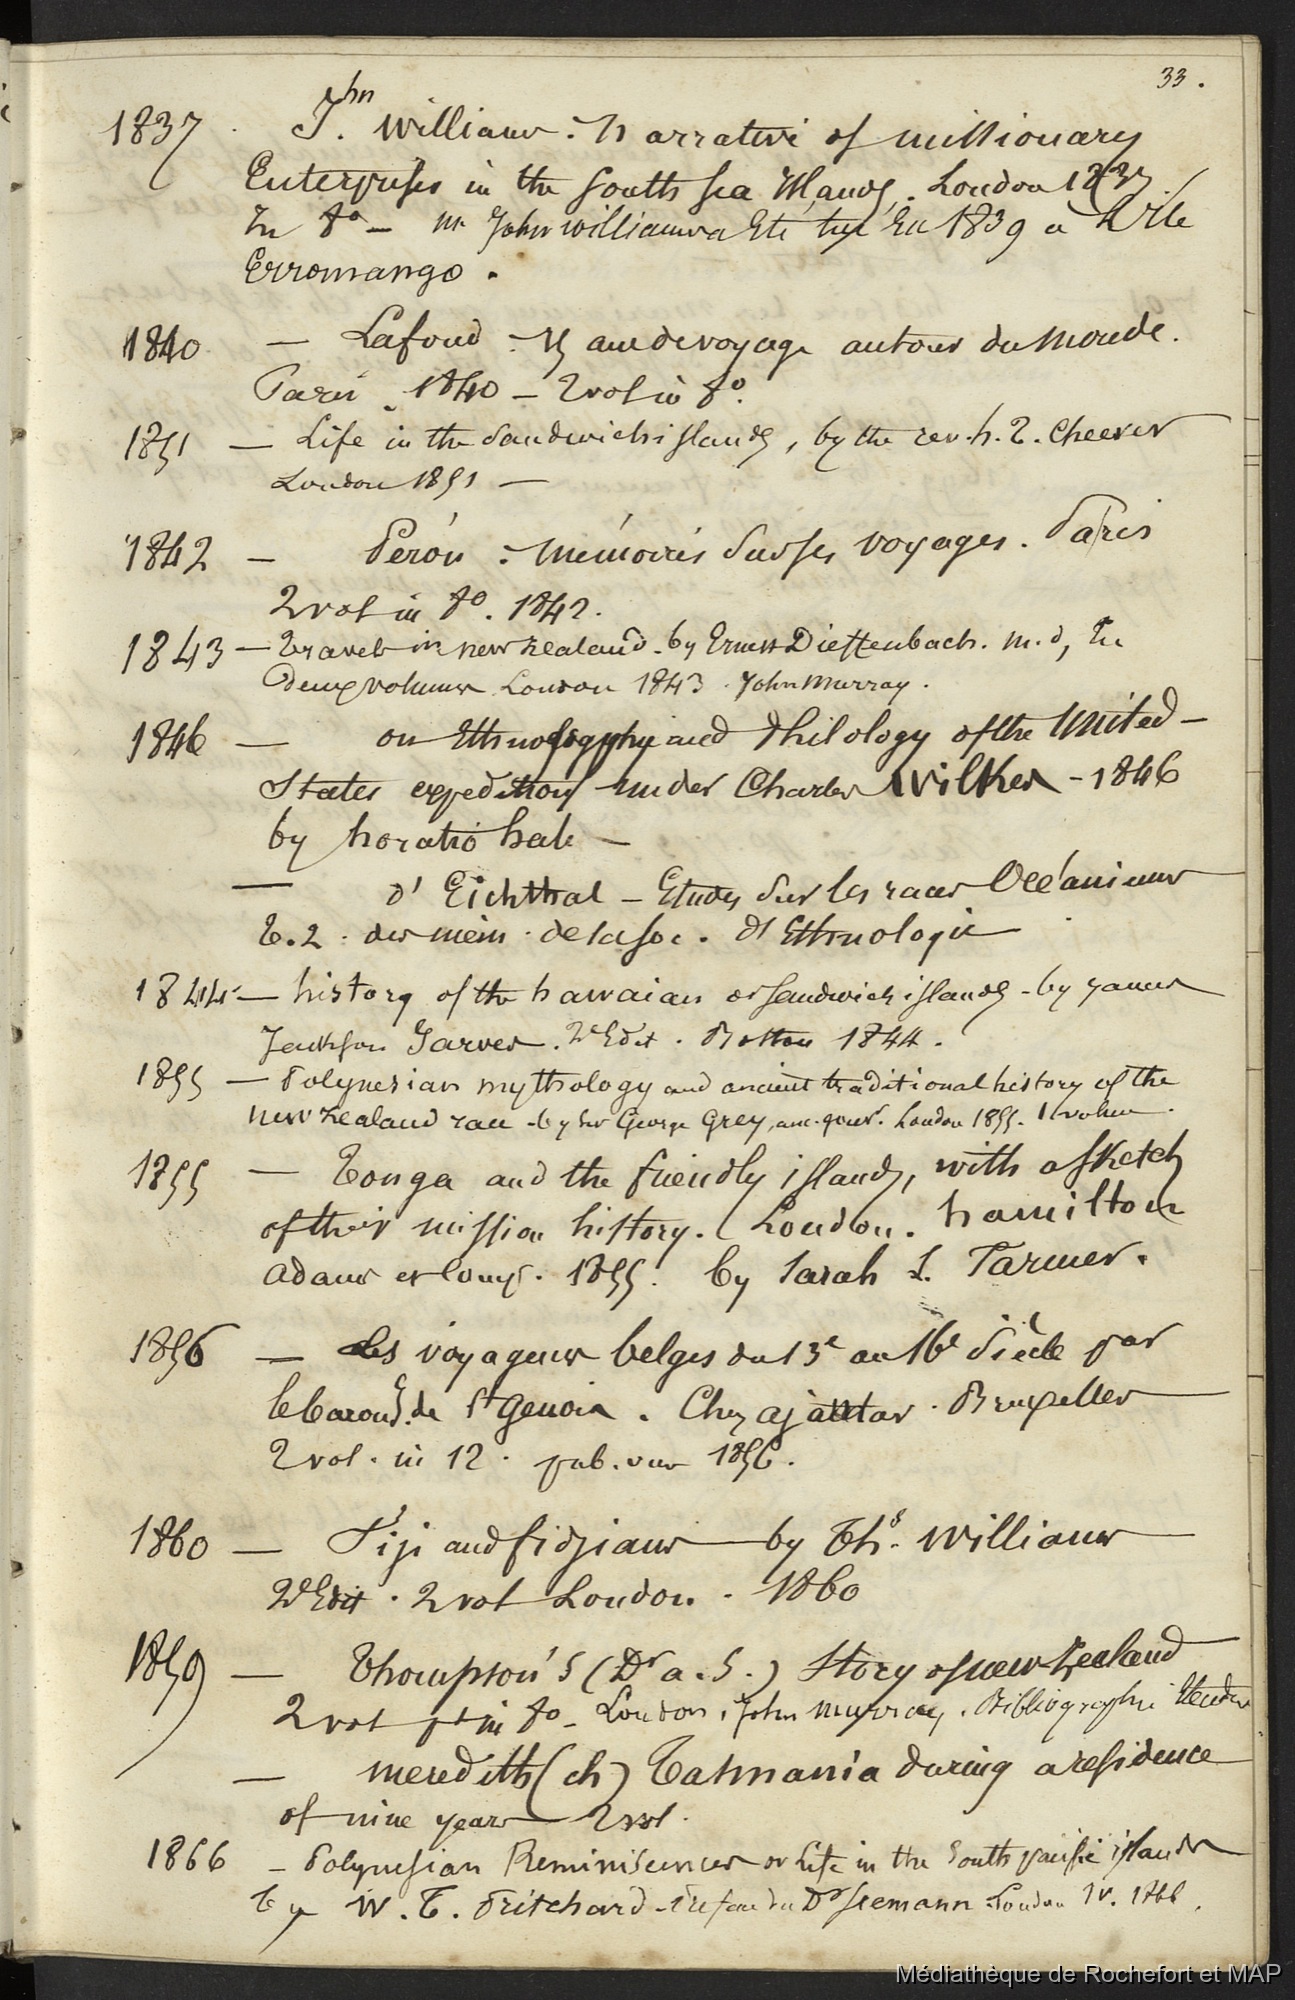 33.
1837. Jhn. Williams. Narrative of missionary
Enterprises in the South sea Islands. London 1837.
In 8o — Mr John Williams a Eté tué En 1839 à L'île
Erromango.
1840 — Lafond : 15 ans de voyage autour du Monde.
Paris. 1840 — 2 vol in 8o.
1851 — Life in the Sandwich islands, by the rev. h. T. Cheever
London 1851 —
1842 — Péron : Mémoires sur ses voyages. Paris
2 vol in 8o. 1842.
1843 — Travels in new Zealand. by Ernest Dieffenbach. M.d, En
deux volumes London 1843. John Murray.
1846 — on Ethnography and Philology of the United-
States expedition under Charles Wilkes - 1846
by horatio hale —
— d'Eichthal — Etudes sur les races Océaniennes
T. 2. des mém. de la soc. d'Ethnologie
1844 — history of the hawaian or Sandwich islands - by James
Jackson Jarves. 2d Edit. Boston 1844.
1855 — Polynesian mythology and ancient traditional history of the
new Zealand race - by Sir George Grey, anc. gouvr. London 1855. 1 volume.
1855 — Tonga and the friendly islands, with a sketch
of their mission history. London. hamilton
adams et Comp. 1855. by Sarah S. Farmer.
1856 — Les voyageurs belges du 13e au 16e Siècle par
le baron J. de St Genois. Chez a jamar. Bruxelles
2 vol. in 12. pub. vers 1856.
1860 — Fiji and fidjians — by Ths. Williams
2d Edit. 2 vol London. 1860
1859 — Thompson's (Dr a. S.) Story of new Zealand
2 vol pt in 8o — London, John Murray. Bibliographie
— meredith (ch) Tasmania during a residence
of nine years 2 vol.
1866 — Polynesian Reminiscences or Life in the South pacific islands
by W. T. Pritchard. Préface du Dr Seemann London 1 v. 1866.
Médiathèque de Rochefort et MAP